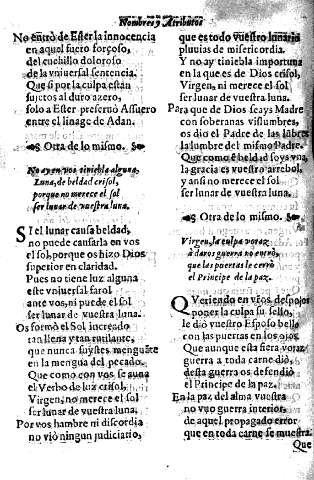 Nombres y Atributos
No entrò de Ester la innocencia
en aquel fuero forçoso,
del cuchillo doloroso
de la vniuersal sentencia.
Que si por la culpa están
sujetos al duro azero,
solo a Ester preseruò Assuero
entre el linage de Adan.
Otra de lo mismo.
No ay en vos tiniebla alguna,
Luna, de beldad crisol,
porque no merece el sol
ser lunar de vuestra luna.
SI el lunar causa beldad,
no puede causarla en vos
el sol, porque os hizo Dios
superior en claridad.
Pues no tiene luz alguna
este vniuersal farol
ante vos, ni puede el sol
ser lunar de vuestra luna.
Os formò el Sol increado
tan llena y tan rutilante,
que nunca fuystes menguãte
en la mengua del pecado.
Que como con vos se auna
el Verbo de luz crisol,
Virgen, no merece el sol
ser lunar de vuestra luna.
Por vos hambre ni discordia
no viò ningun judiciario,
que es todo vuestro lunario
pluuias de misericordia.
Y no ay tiniebla importuna
en la que es de Dios crisol,
Virgen, ni merece el sol
ser lunar de vuestra luna.
Para que de Dios seays Madre
con soberanas vislumbres,
os dio el Padre de las lũbres
la lumbre del mismo Padre.
Que como è beldad soys vna,
la gracia es vuestro arrebol,
y ansi no merece el sol
ser lunar de vuestra luna.
Otra de lo mismo.
Virgen, la culpa voraz
à daros guerra no entrò,
que las puertas le cerrò
el Principe de la paz.
QVeriendo en vr̃os despojos
poner la culpa su sello,
le diò vuestro Esposo bello
con las puertas en los ojos.
Que aunque esta fiera voraz
guerra a toda carne diò,
desta guerra os defendiò
el Principe de la paz.
En la paz del alma vuestra
no vuo guerra interior,
de aquel propagado error
que en toda carne se muestra.
Que